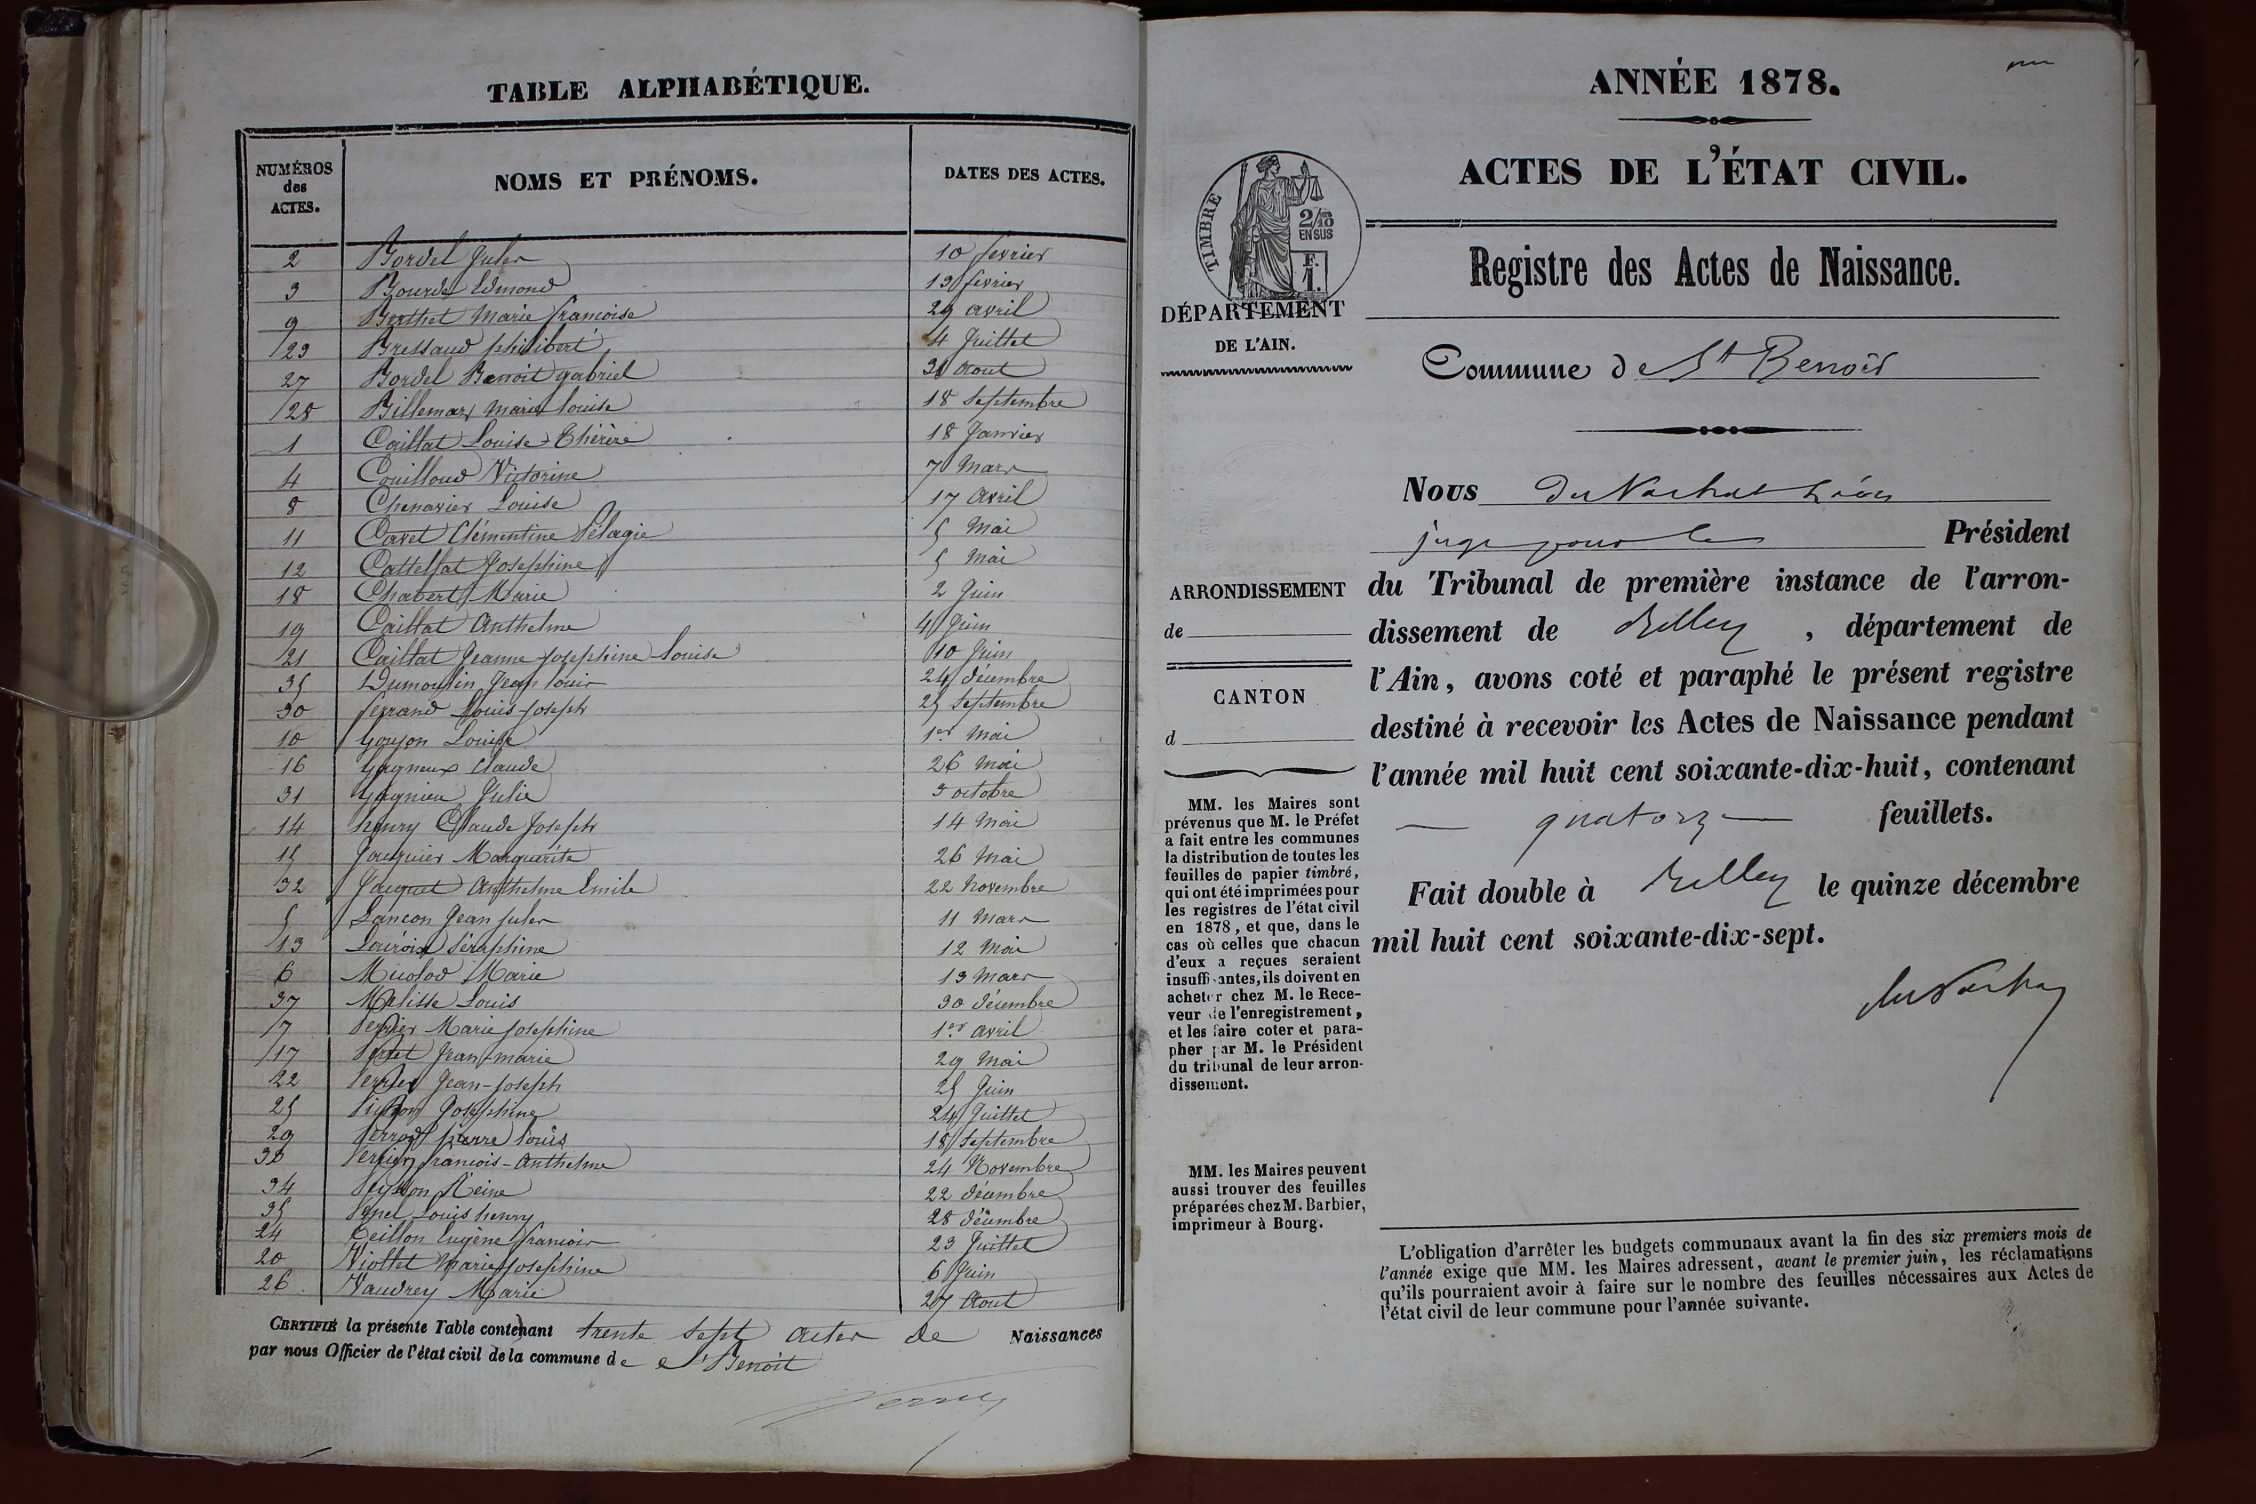 TABLE ALPHABÉTIQUE.
NUMÉROS des ACTES. NOMS ET PRÉNOMS. DATES DES ACTES.
2 Bordel Jules 10 fevrier
3 Bourdel Edmond 13 fevrier
9 Berthet Marie francoise 29 avril
23 Bressaud philibert 4 Juillet
27 Bordel Benoit gabriel 31 aout
28 Billemaz Marie louise 18 Septembre
1 Caillat Louise-Thérèse 18 Janvier
4 Couilloud Victorine 7 Mars
8 Chenavier Louise 17 avril
11 Cavet Clémentine Pélagie 5 Mai
12 Cattelsat Josephine 5 Mai
18 Chabert Marie 2 Juin
19 Caillat Anthelme 4 Juin
21 Caillat Jeanne Josephine Louise 10 Juin
35 Dumoulin Jean louis 24 décembre
30 ferrand Louis Joseph 25 Septembre
10 goujon Louise 1er Mai
16 gagneux Claude 26 Mai
31 gagnieu Julie 3 octobre
14 henry Claude Joseph 14 Mai
15 Jacquier Marguerite 26 Mai
32 Jacquet Anthelme Emile 22 Novembre
5 Lancon Jean Jules 11 Mars
13 Louroix Séraphine 12 Mai
6 Muolod Marie 13 Mars
37 Melisse Louis 30 décembre
7 Perrier Marie Josephine 1er avril
17 Jean-marie 29 Mai
22 Perrier Jean-Joseph 25 Juin
25 Josephine 24 Juillet
29 Perrod pierre louis 18 Septembre
33 Perrier francois-Anthelme 24 Novembre
34 Peysson Reine 22 décembre
35 Louis henry 28 décembre
24 Teillon Eugène francois 23 Juillet
20 Viollet Marie Josephine 6 Juin
26 Vaudrey Marie 27 Aout
CERTIFIÉ la présente Table contenant trente sept actes de Naissances
par nous Officier de l'état civil de la commune de St Benoit
ANNÉE 1878.
ACTES DE L'ÉTAT CIVIL.
TIMBRE
2/10 EN SUS
F. 1.
DÉPARTEMENT
DE L'AIN.
Registre des Actes de Naissance.
Commune de St Benoit
Nous du Vachat Léon
juge pour le Président
du Tribunal de première instance de l'arron-
dissement de Belley, département de
l'Ain, avons coté et paraphé le présent registre
destiné à recevoir les Actes de Naissance pendant
l'année mil huit cent soixante-dix-huit, contenant
quatorze feuillets.
Fait double à Belley le quinze décembre
mil huit cent soixante-dix-sept.
du Vachat
ARRONDISSEMENT
de
CANTON
d
MM. les Maires sont
prévenus que M. le Préfet
a fait entre les communes
la distribution de toutes les
feuilles de papier timbré,
qui ont été imprimées pour
les registres de l'état civil
en 1878, et que, dans le
cas où celles que chacun
d'eux a reçues seraient
insuffisantes, ils doivent en
acheter chez M. le Rece-
veur de l'enregistrement,
et les faire coter et para-
pher par M. le Président
du tribunal de leur arron-
dissement.
MM. les Maires peuvent
aussi trouver des feuilles
préparées chez M. Barbier,
imprimeur à Bourg.
L'obligation d'arrêter les budgets communaux avant la fin des six premiers mois de
l'année exige que MM. les Maires adressent, avant le premier juin, les réclamations
qu'ils pourraient avoir à faire sur le nombre des feuilles nécessaires aux Actes de
l'état civil de leur commune pour l'année suivante.